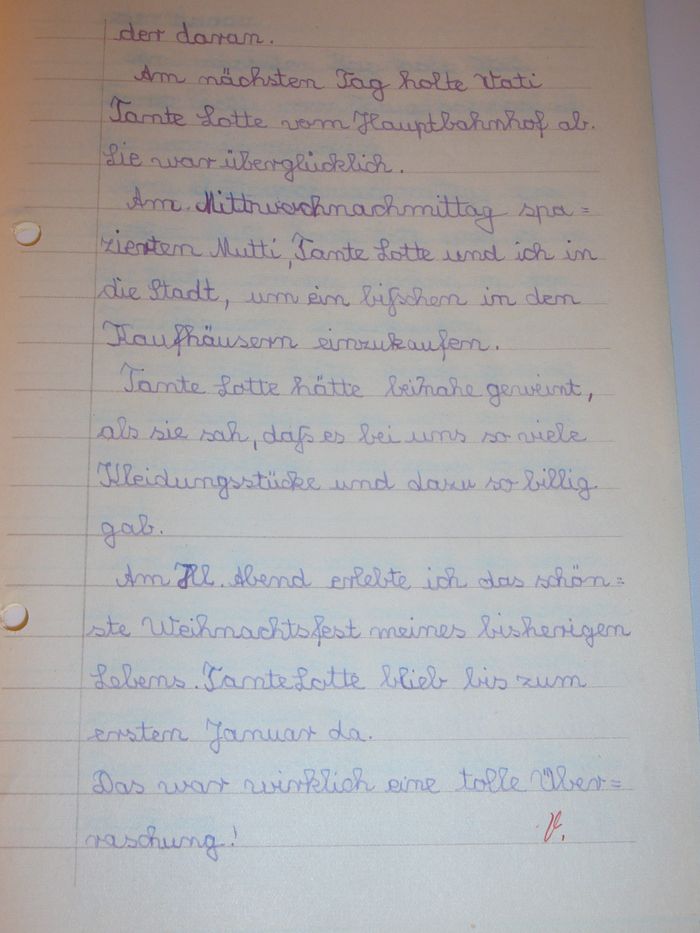 der daran.
Am nächsten Tag holte Vati
Tante Lotte vom Hauptbahnhof ab.
Sie war überglücklich.
Am Mittwochnachmittag spa=
zierten Mutti, Tante Lotte und ich in
die Stadt, um ein bißchen in den
Kaufhäusern einzukaufen.
Tante Lotte hätte beinahe geweint,
als sie sah, daß es bei uns so viele
Kleidungsstücke und dazu so billig
gab.
Am Hl. Abend erlebte ich das schön=
ste Weihnachtsfest meines bisherigen
Lebens. Tante Lotte blieb bis zum
ersten Januar da.
Das war wirklich eine tolle Über=
raschung!